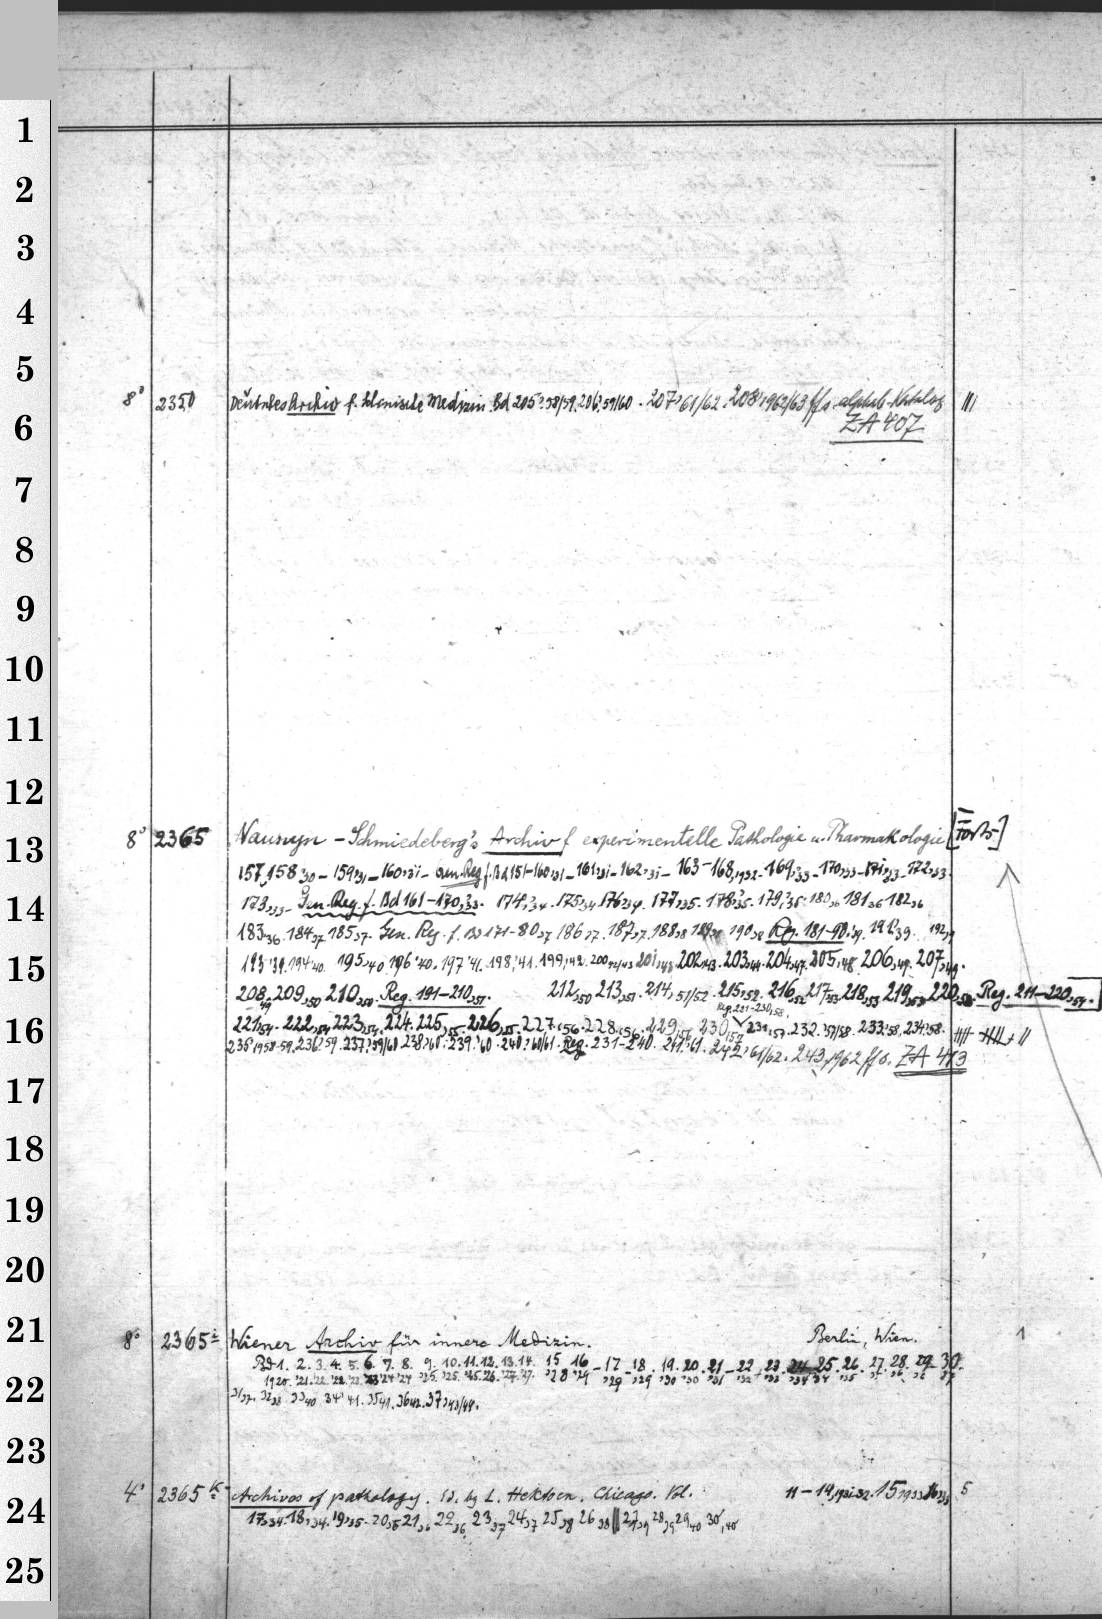 1
2
3
4
5
8° 2350 Deutsches Archiv f. klinische Medizin. Bd 205,58/59. 206,59/60. 207,61/62. 208,1962/63 ff s. alphab. Katalog
6
ZA 407
7
8
9
10
11
12
8° 2365 Naunyn-Schmiedeberg's Archiv f experimentelle Pathologie u. Pharmakologie [Forts]
13
157,158,30 - 159,31 - 160,31 - Gen. Reg. f. Bd 151-160,31 - 161,31 - 162,31 - 163-168,1932 - 169,33 - 170,33 - 171,33 - 172,33.
14
173,33 - Gen. Reg. f. Bd 161-170,33. 174,34. 175,34 176,34. 177,35. 178,35. 179,35. 180,36 181,36 182,36
183,36. 184,37 185,37. Gen. Reg. f. Bd 171-80,37 186,37. 187,37. 188,38 189,38 190,38 Reg. 181-90,39. 191,39. 192,39
15
193,'39. 194,'40. 195,40 196,'40. 197,'41. 198,'41. 199,'42. 200,42/43 201,43 202,43. 203,44. 204,47. 205,48. 206,49. 207,49.
208,49 209,50 210,50. Reg. 191-210,51. 212,50 213,51. 214,51/52. 215,52. 216,52 217,53 218,53 219,53 220,53. Reg. 211-220,54.
Reg. 221-230,58.
16
221,54. 222,54 223,54. 224. 225,55. 226,55. 227,56. 228,56. 229,56 230,57 231,57. 232,57/58. 233,58. 234,58.
235,1958-59. 236,59. 237,59/60. 238,60. 239,'60. 240,60/61. Reg. 231-240. 241,'61. 242,61/62. 243,1962 ff s. ZA 413
17
18
19
20
21
8° 2365 i Wiener Archiv für innere Medizin. Berlin, Wien. 1
Bd 1. 2. 3. 4. 5. 6. 7. 8. 9. 10. 11. 12. 13. 14. 15 16 - 17 - 18. 19. 20. 21 - 22 - 23. 24 25. 26. 27. 28. 29. 30.
22
31,37. 32,38 33,40 34,41. 35,41. 36,42. 37,43/44.
23
4° 2365 k Archives of pathology. Ed. by L. Hektoen. Chicago. Vol. 11-14,1931.32. 15,1933 16,33 5
24
17,34. 18,34. 19,35. 20,35 21,36 22,36 23,37 24,37 25,38 26,38 27,39 28,39 29,40 30,40
25